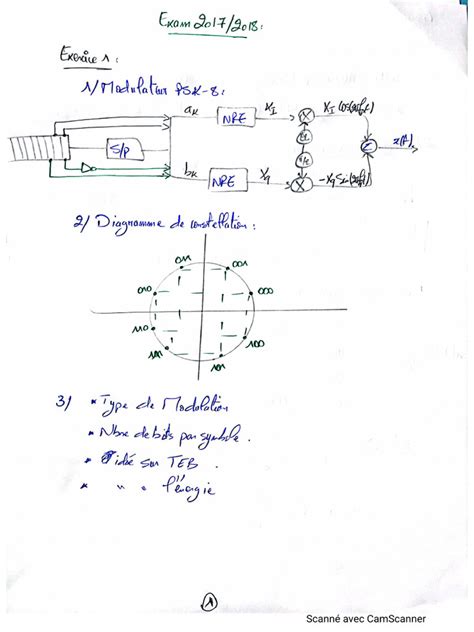 Exam 2017/2018:
Exercice 1:
1/ Modulateur PSK-8:
ak NRE XI XI cos(2πf0t)
S/P x(t)
bk NRE Xq -Xq Sin(2πf0t)
2/ Diagramme de constellation:
011 001
010 000
110 100
101
3/ * Type de Modulation
* Nbre de bits par symbole.
* idée sur TEB.
* " " l'énergie
1
Scanné avec CamScanner